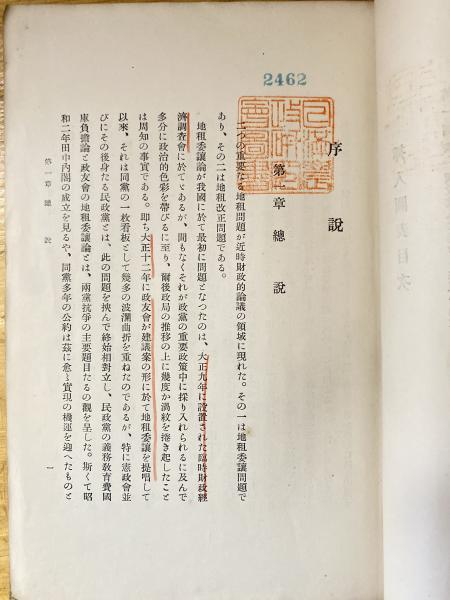 2462
序說
第一章 總說
二つの重要なる地租問題が近時財政的論議の領域に現れた。その一は地租委讓問題で
あり、その二は地租改正問題である。
地租委讓論が我國に於て最初に問題となつたのは、大正九年に設置された臨時財政經
濟調査會に於てとあるが、間もなくそれが政黨の重要政策中に採り入れられるに及んで
多分に政治的色彩を帶びるに至り、爾後政局の推移の上に幾度か渦紋を捲き起したこと
は周知の事實である。即ち大正十二年に政友會が建議案の形に於て地租委讓を提唱して
以來、それは同黨の一枚看板として幾多の波瀾曲折を重ねたのであるが、特に憲政會並
びにその後身たる民政黨とは、此の問題を挾んで終始相對立し、民政黨の義務敎育費國
庫負擔論と政友會の地租委讓論とは、兩黨抗爭の主要題目たるの觀を呈した。斯くて昭
和二年田中內閣の成立を見るや、同黨多年の公約は茲に愈〻實現の機運を迎へたものと
第一章 總說
一